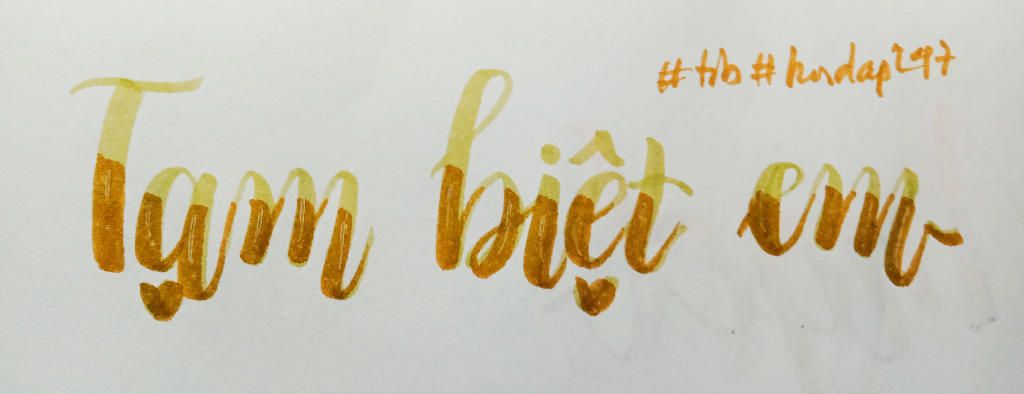 #trb #kordap297
Tạm biệt em